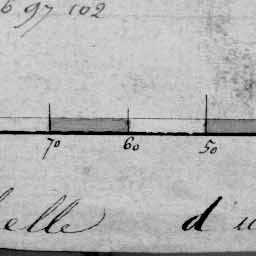 6 97 102
70 60 50
elle d'u